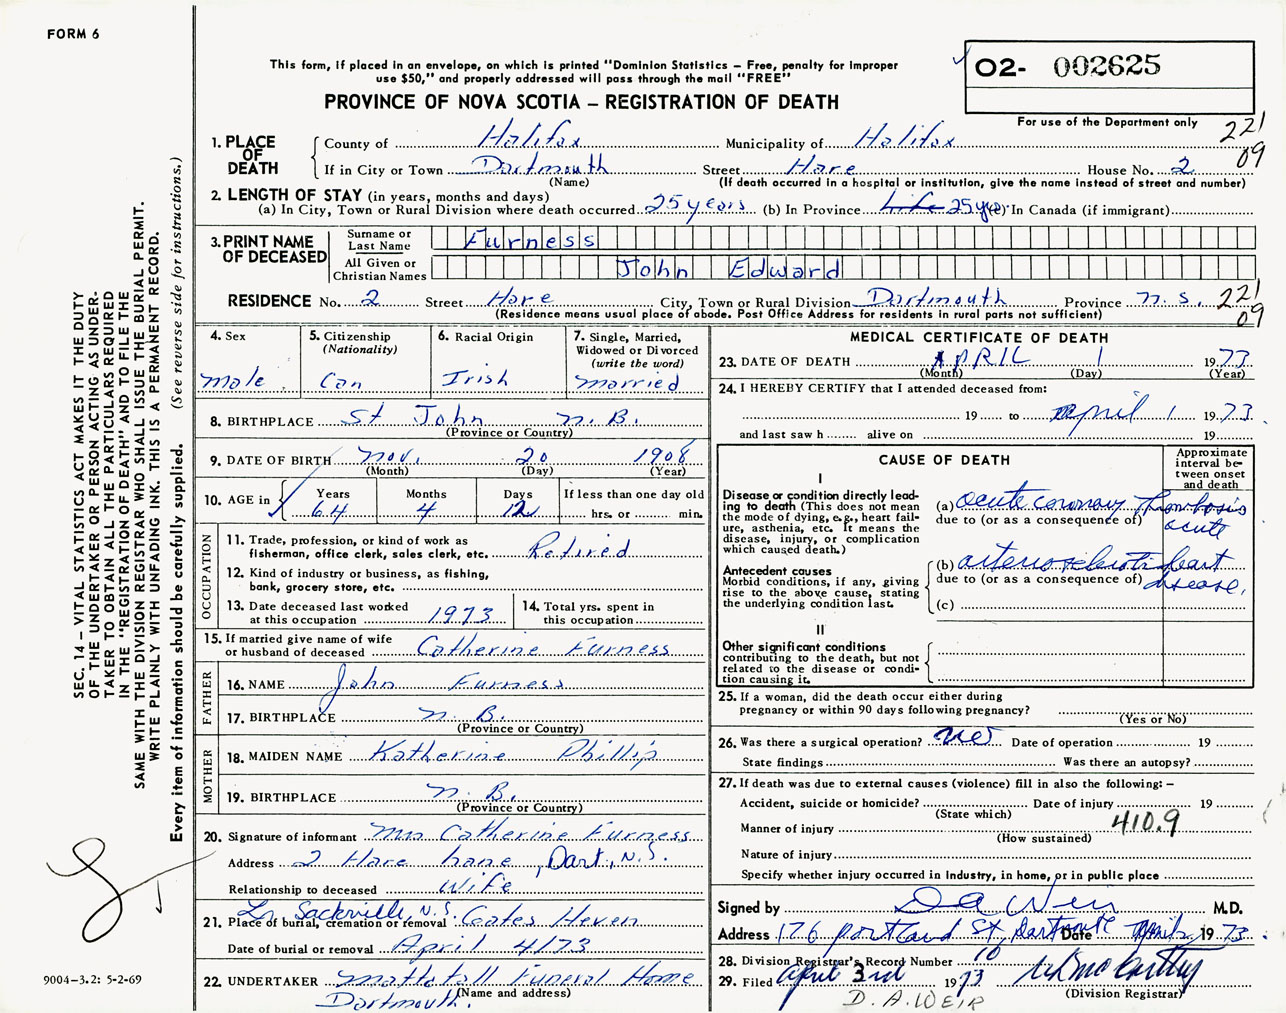 FORM 6
This form, if placed in an envelope, on which is printed "Dominion Statistics – Free, penalty for improper
use $50," and properly addressed will pass through the mail "FREE"
PROVINCE OF NOVA SCOTIA – REGISTRATION OF DEATH
02- 002625
For use of the Department only
221
09
1. PLACE OF DEATH County of Halifax Municipality of Halifax
If in City or Town Dartmouth Street Hare House No. 2
(Name) (If death occurred in a hospital or institution, give the name instead of street and number)
2. LENGTH OF STAY (in years, months and days)
(a) In City, Town or Rural Division where death occurred 25 years (b) In Province Life 25 yrs (c) In Canada (if immigrant)
3. PRINT NAME OF DECEASED
Surname or Last Name Furness
All Given or Christian Names John Edward
RESIDENCE No. 2 Street Hare City, Town or Rural Division Dartmouth Province N.S. 221
(Residence means usual place of abode. Post Office Address for residents in rural parts not sufficient) 09
4. Sex Male
5. Citizenship (Nationality) Can
6. Racial Origin Irish
7. Single, Married, Widowed or Divorced (write the word) Married
8. BIRTHPLACE St John N.B.
(Province or Country)
9. DATE OF BIRTH Nov. 20 1908
(Month) (Day) (Year)
10. AGE in Years 64 Months 4 Days 12 If less than one day old hrs. or min.
OCCUPATION
11. Trade, profession, or kind of work as
fisherman, office clerk, sales clerk, etc. Retired
12. Kind of industry or business, as fishing,
bank, grocery store, etc.
13. Date deceased last worked
at this occupation 1973
14. Total yrs. spent in
this occupation
15. If married give name of wife
or husband of deceased Catherine Furness
FATHER
16. NAME John Furness
17. BIRTHPLACE N.B.
(Province or Country)
MOTHER
18. MAIDEN NAME Katherine Phillip
19. BIRTHPLACE N.B.
(Province or Country)
20. Signature of informant Mrs Catherine Furness
Address 2 Hare Lane, Dart, N.S.
Relationship to deceased Wife
Lr. Sackville, N.S.
21. Place of burial, cremation or removal Gates Heven
Date of burial or removal April 4/73
22. UNDERTAKER Mattatall Funeral Home
(Name and address)
Dartmouth.
MEDICAL CERTIFICATE OF DEATH
23. DATE OF DEATH APRIL 1 1973
(Month) (Day) (Year)
24. I HEREBY CERTIFY that I attended deceased from:
19 to April 1 1973.
and last saw h alive on 19
CAUSE OF DEATH
Approximate interval be-
tween onset
and death
I
Disease or condition directly lead-
ing to death (This does not mean
the mode of dying, e.g., heart fail-
ure, asthenia, etc. It means the
disease, injury, or complication
which caused death.)
(a) acute coronary thrombosis
due to (or as a consequence of) acute
Antecedent causes
Morbid conditions, if any, giving
rise to the above cause, stating
the underlying condition last.
(b) arteriosclerotic heart
due to (or as a consequence of) disease.
(c)
II
Other significant conditions
contributing to the death, but not
related to the disease or condi-
tion causing it.
25. If a woman, did the death occur either during
pregnancy or within 90 days following pregnancy?
(Yes or No)
26. Was there a surgical operation? Date of operation 19
State findings Was there an autopsy?
27. If death was due to external causes (violence) fill in also the following: –
Accident, suicide or homicide? Date of injury 19
(State which)
Manner of injury 410.9
(How sustained)
Nature of injury
Specify whether injury occurred in industry, in home, or in public place
Signed by D A Weir M.D.
Address 176 Portland St, Dartmouth Date April 2 1973.
28. Division Registrar's Record Number 10
29. Filed April 3rd 1973
(Division Registrar)
D. A. WEIR
SEC. 14 – VITAL STATISTICS ACT MAKES IT THE DUTY
OF THE UNDERTAKER OR PERSON ACTING AS UNDER-
TAKER TO OBTAIN ALL THE PARTICULARS REQUIRED
IN THE "REGISTRATION OF DEATH" AND TO FILE THE
SAME WITH THE DIVISION REGISTRAR WHO SHALL ISSUE THE BURIAL PERMIT.
WRITE PLAINLY WITH UNFADING INK. THIS IS A PERMANENT RECORD.
Every item of information should be carefully supplied. (See reverse side for instructions.)
9004–3.2: 5-2-69